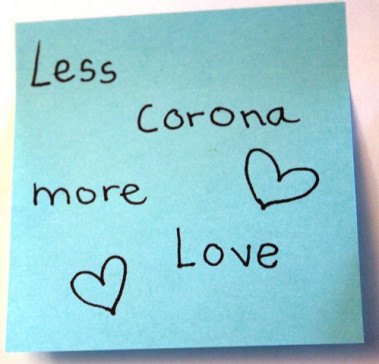 Less
corona
more
Love